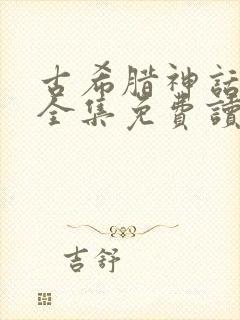 古希腊神話
全集免費讀
吉舒